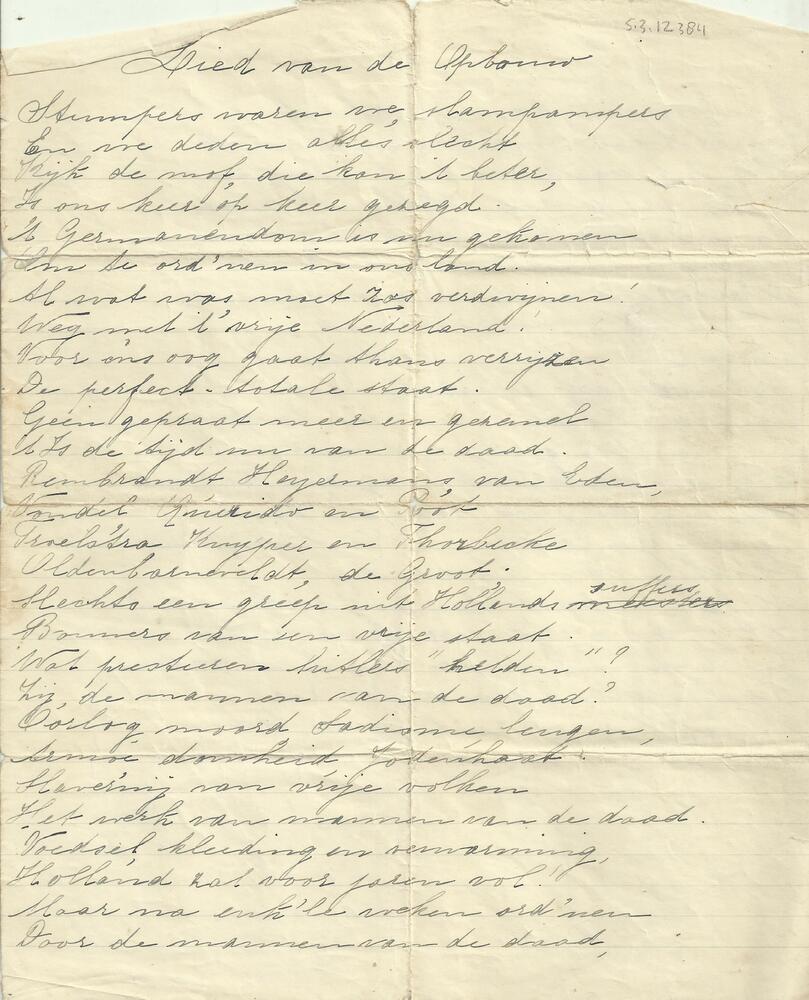 5.3.12384
Lied van de Opbouw
Stumpers waren we, slampampers
En we deden alles slecht
Kijk de mof, die kan 't beter,
Is ons keer op keer gezegd.
't Germanendom is nu gekomen
Om te ord'nen in ons land.
Al wat was moet zoo verdwijnen!
Weg met 't vrije Nederland!
Voor ons oog gaat thans verrijzen
De perfect-totale staat.
Geen gepraat meer en gezanik
't Is de tijd nu van de daad.
Rembrandt Heyermans van Eden,
Vondel Querido en Poot
Troelstra Kuyper en Thorbecke
Oldenbarneveldt, de Groot.
suffers
Slechts een greep uit Hollands meesters
Bouwers van een vrije staat.
Wat presteeren Hitlers "helden"?
Zij, de mannen van de daad?
Oorlog moord Sadisme, leugen,
Armoe domheid, Jodenhaat.
Slavernij van vrije volken
Het werk van mannen van de daad.
Voedsel kleeding en verwarming,
Holland zat voor jaren vol!
Maar na enk'le weken ord'nen
Door de mannen van de daad,